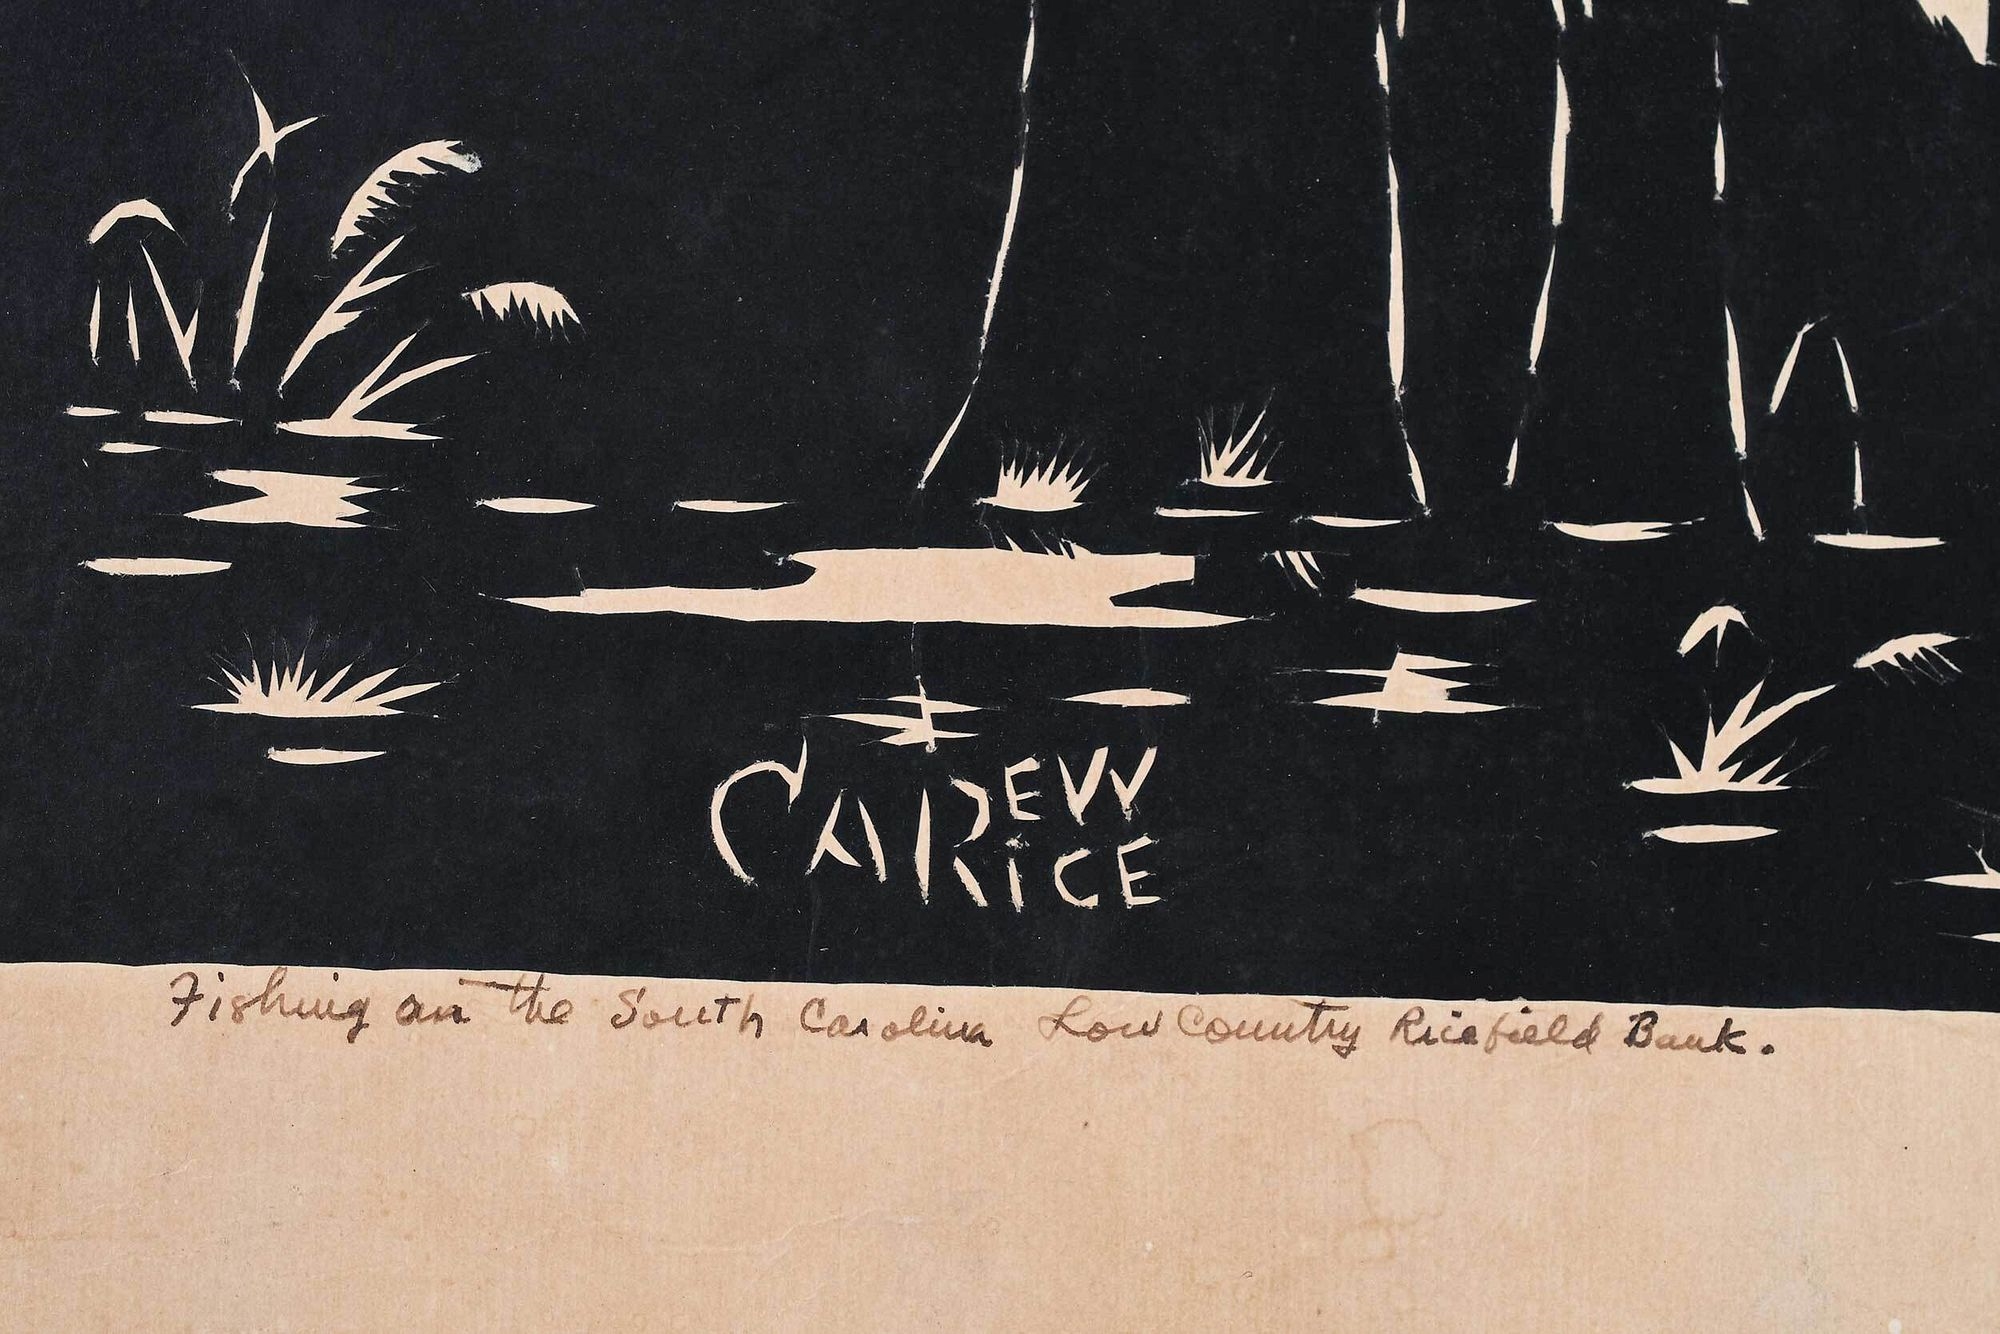 CAREW
RiCE
Fishing on the South Carolina Low Country Ricefield Bank.